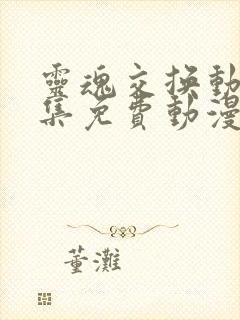 靈魂交換動
集免費動漫
董灘